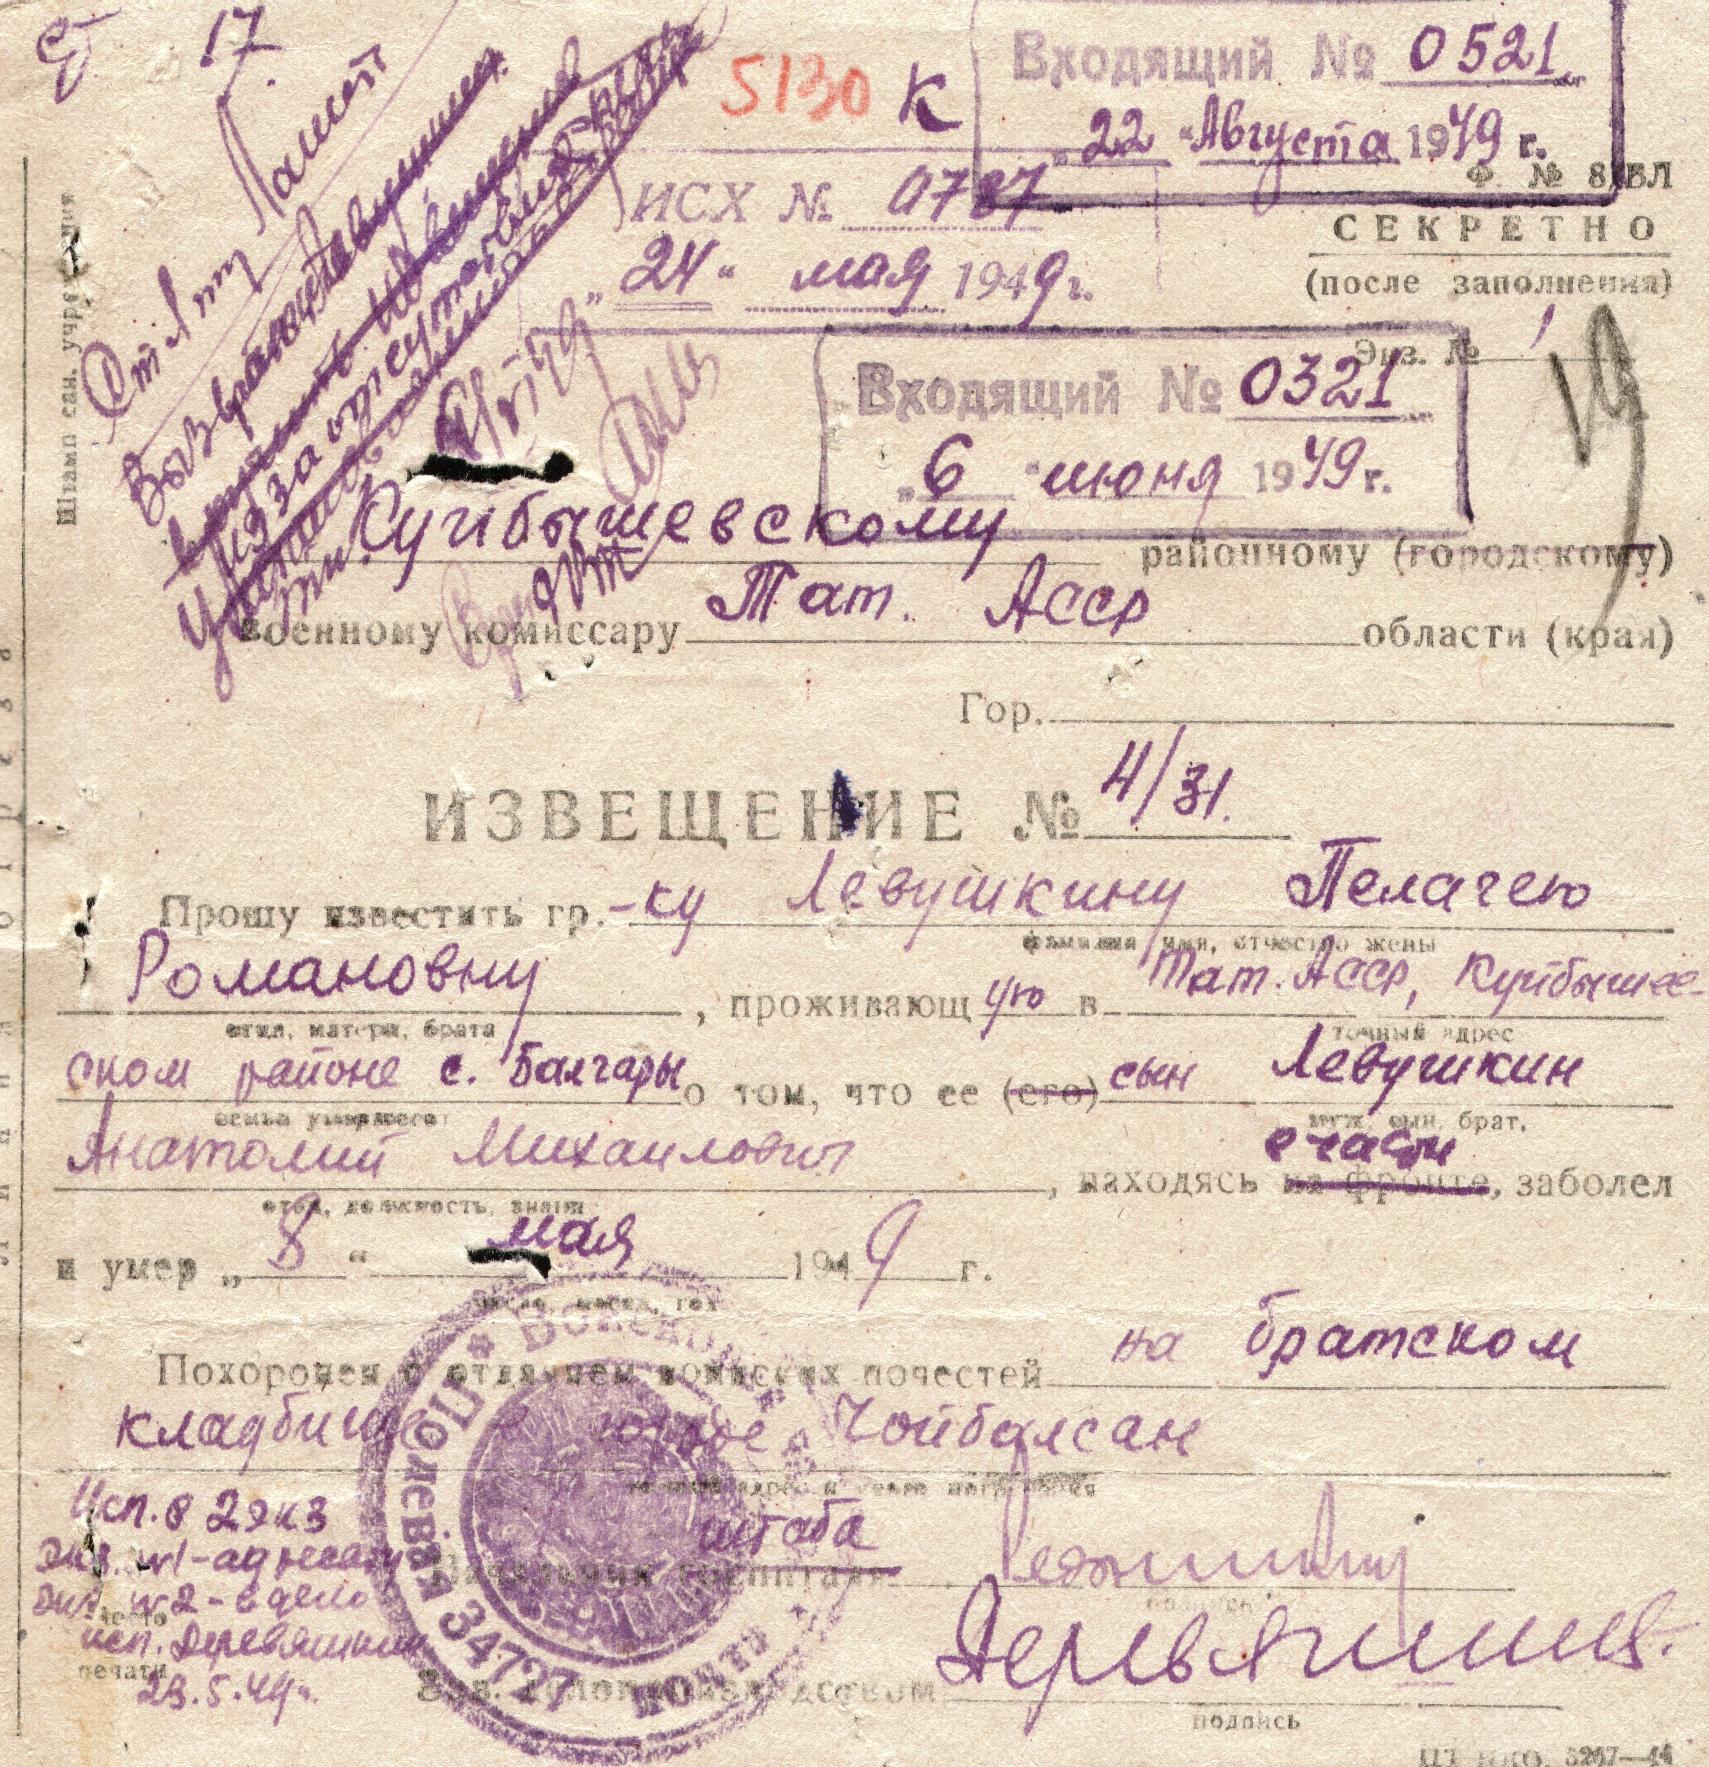 17
5130 К
Входящий № 0521
„22" Августа 1949 г.
Ф. № 8/ВЛ
ИСХ № 0787
СЕКРЕТНО
„24" мая 1949 г.
(после заполнения)
Экз. № 1
Входящий № 0321
„6" июня 1949 г.
Штамп сан. учреждения
Куйбышевскому районному (городскому)
военному комиссару Тат. Асср области (края)
Гор.
ИЗВЕЩЕНИЕ № 4/31.
Прошу известить гр.-ку Левушкину Пелагею
фамилия, имя, отчество жены
Романовну, проживающ ую в Тат. Асср, Куйбышев-
отца, матери, брата
точный адрес
ском районе с. Балгары о том, что ее (его) сын Левушкин
семьи умершего
муж, сын, брат,
Анатолий Михаилович, находясь на фронте, заболел
в части
и умер „8" мая 1949 г.
число, месяц, год
Похоронен с отданием воинских почестей на братском
кладбище в городе Чойбалсан
Исп. в 2 экз
экз. №1-адресату
экз. №2-в дело
исп. Деревяшкин
23.5.49г.
Место
печати
штаба
Начальник госпиталя
Полевая почта 34727
Зав. делопроизводством
подпись